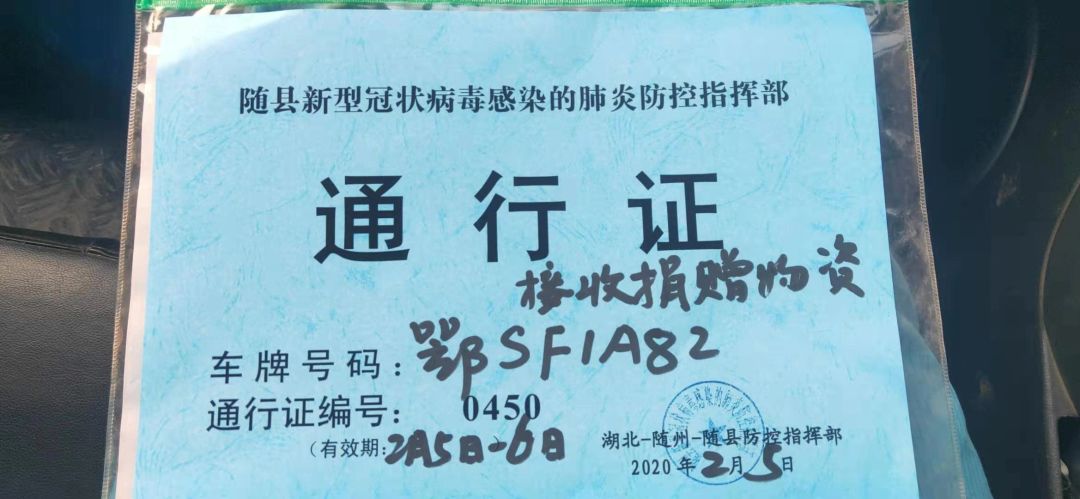 随县新型冠状病毒感染的肺炎防控指挥部
通行证
接收捐赠物资
车牌号码：鄂SF1A82
通行证编号：0450
（有效期：2月5日-6日
湖北-随州-随县防控指挥部
2020年2月5日